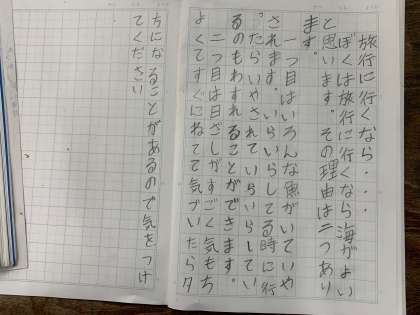 旅行に行くなら・・・
ぼくは旅行に行くなら海がよい
と思います。その理由は二つあり
ます。
一つ目はいろんな魚がいていや
されます。いらいらしてる時に行
ったらいやされていらいらしてい
るのもわすれることができます。
二つ目は日ざしがすごく気もち
よくてすぐにねてて気づいたら夕
方になることがあるので気をつけ
てください